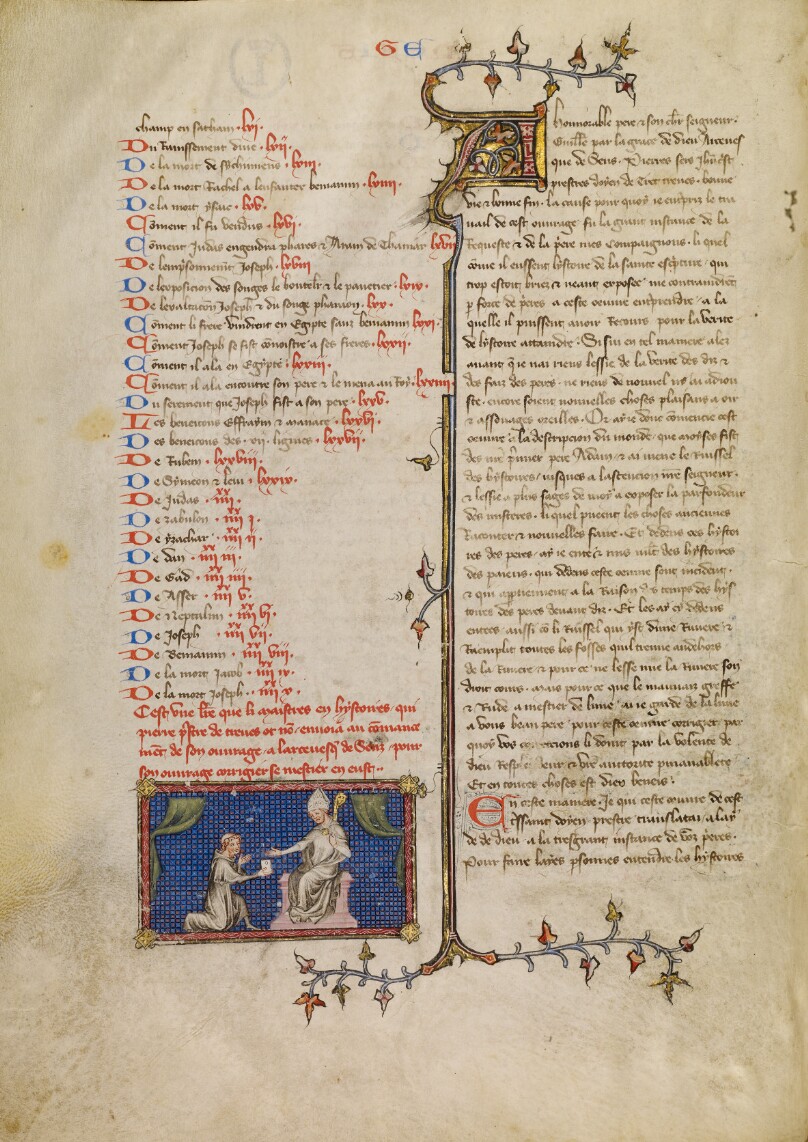 GE
champ en satham · lxi ·
Du rauissement dine · lxii ·
De la mort de sychimiens · lxiii ·
De la mort Rachel a lenfanter beniamin · lxiiii ·
De la mort ysaac · lxv ·
Coment il fu vendus · lxvi ·
Coment Judas engendra phares & zaram de Thamar lxvii
De lemprisonement Joseph · lxviii
De lexposicion des songes le boutelr & le panetier · lxix ·
De lexaltacion Joseph & du songe pharaon · lxx ·
Coment li frere vindrent en Egipte sanz beniamin lxxi ·
Coment Joseph se fist conoistre a ses freres · lxxii ·
Coment il ala en Egypte · lxxiii ·
Coment il ala encontre son pere & le mena au Roy · lxxiiii ·
Du serement que Joseph fist a son pere · lxxv ·
Les beneicons Effraym & manace · lxxvi ·
Des beneicons des · xii · lignies · lxxvii ·
De Ruben · lxxviii ·
De Symeon & leui · lxxix ·
De Judas · iiii ·
De zabulon · iiii i ·
De yzachar · iiii ii ·
De dan · iiii iii ·
De Gad · iiii iiii ·
De Asser · iiii v ·
De Neptalim · iiii vi ·
De Joseph · iiii vii ·
De Beniamin · iiii viii ·
De la mort Jacob · iiii ix ·
De la mort Joseph · · iiii x ·
Cest vne lre que li maistres en hystoires qui
pierre prstre de treues ot non enuoia au comance
ment de son ouurage · a larceuesq de Senz · pour
son ouurage corrigier se mestier en eust · ·
A honnorable pere & son chr seigneur ·
Guille par la grace de dieu Arceues
que de Sens · Pierres sers Jhucrist
prestres doyen de Tret treues · bonne
vie & bonne fin · La cause pour quoy ie empris le tra
uail de cest ouurage fu la grant instance de la
Requeste & de la pere mes Compaignons · li quel
come il eussent lystoire de la sainte escpture · qui
trop estoit briez & neant exposee · me contraindret
p force de peres · a ceste oeuure emprendre · a la
quelle il puissent auoir Recours pour la verite
de lystoire attaindre · Si sui en tel maniere alez
auant q ie nai riens lessie de la verite des diz &
des faiz des peres · ne riens de nouuel ni ai adiou
ste · encore soient nouuelles choses plaisans a oir
& assouages oreilles · Or ay ie donc comencie cest
oeuure a la descripcion du monde · que moyses fist
des nre primer pere Adam · & ai mene le Ruissel
des hystoires · iusques a lascencion nre seigneur ·
& lessie a plus sages de moy a exposer la parfondeur
des misteres · li quel pueent les choses anciennes
Raconter & nouuelles faire · Et dedens ces hystoi
res des peres · ay ie ente & mis mlt des hystoires
des paiens · qui dedens ceste oeuure sont incident ·
& qui appartienent a la Raison des temps des hys
toires des peres deuant diz · Et les ay ci dedens
entees aussi co li Ruissel qui yst dune Riuiere &
Raemplit toutes les fosses quil treuue au dehors
de la Riuiere & pour ce ne lesse mie la Riuiere son
droit cours · mais pour ce que le mauuais greffe
& Rude a mestier de lime · ai ie garde de la lime
a vous beau pere · pour ceste oeuure corrigier · par
quoy vos correcions li doint par la volente de
dieu Resplendeur & vre auctorite parianablete
Et en toutes choses est diex beneis ·
En ceste maniere · Je qui ceste oeuure de cest
deuant doyen prestre translatai · a lay
de de dieu · a la tresgrant instance de voz peres ·
Pour faire layes psonnes entendre les hystoires